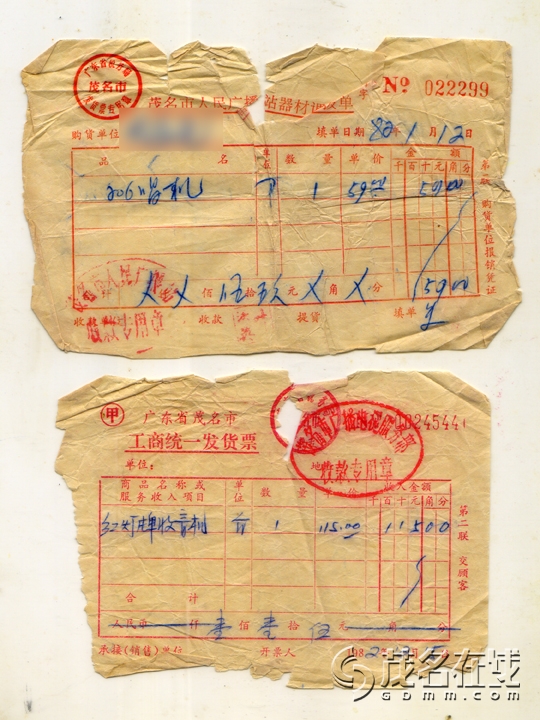 茂名市
茂名市人民广播站器材调拨单
№ 022299
购货单位
填单日期 82年1月12日
品名 单位 数量 单价 金额
千百十元角分
206唱机 个 1 59.00 59.00
第二联 购货单位报销凭证
X X 佰 伍 拾 玖 元 X 角 X 分
159.00
收款专用章
收款 提货 填单
甲
广东省茂名市
工商统一发货票
0024544
收款专用章
单位:
地
商品名称或服务收入项目 单位 数量 单价 收入金额
千百十元角分
红灯牌收音机 台 1 115.00 11500
第二联 交顾客
合计
人民币 仟 壹 佰 壹 拾 伍 元 角 分
承接(销售)单位 开票人 1982
茂名在线
GDMM.com